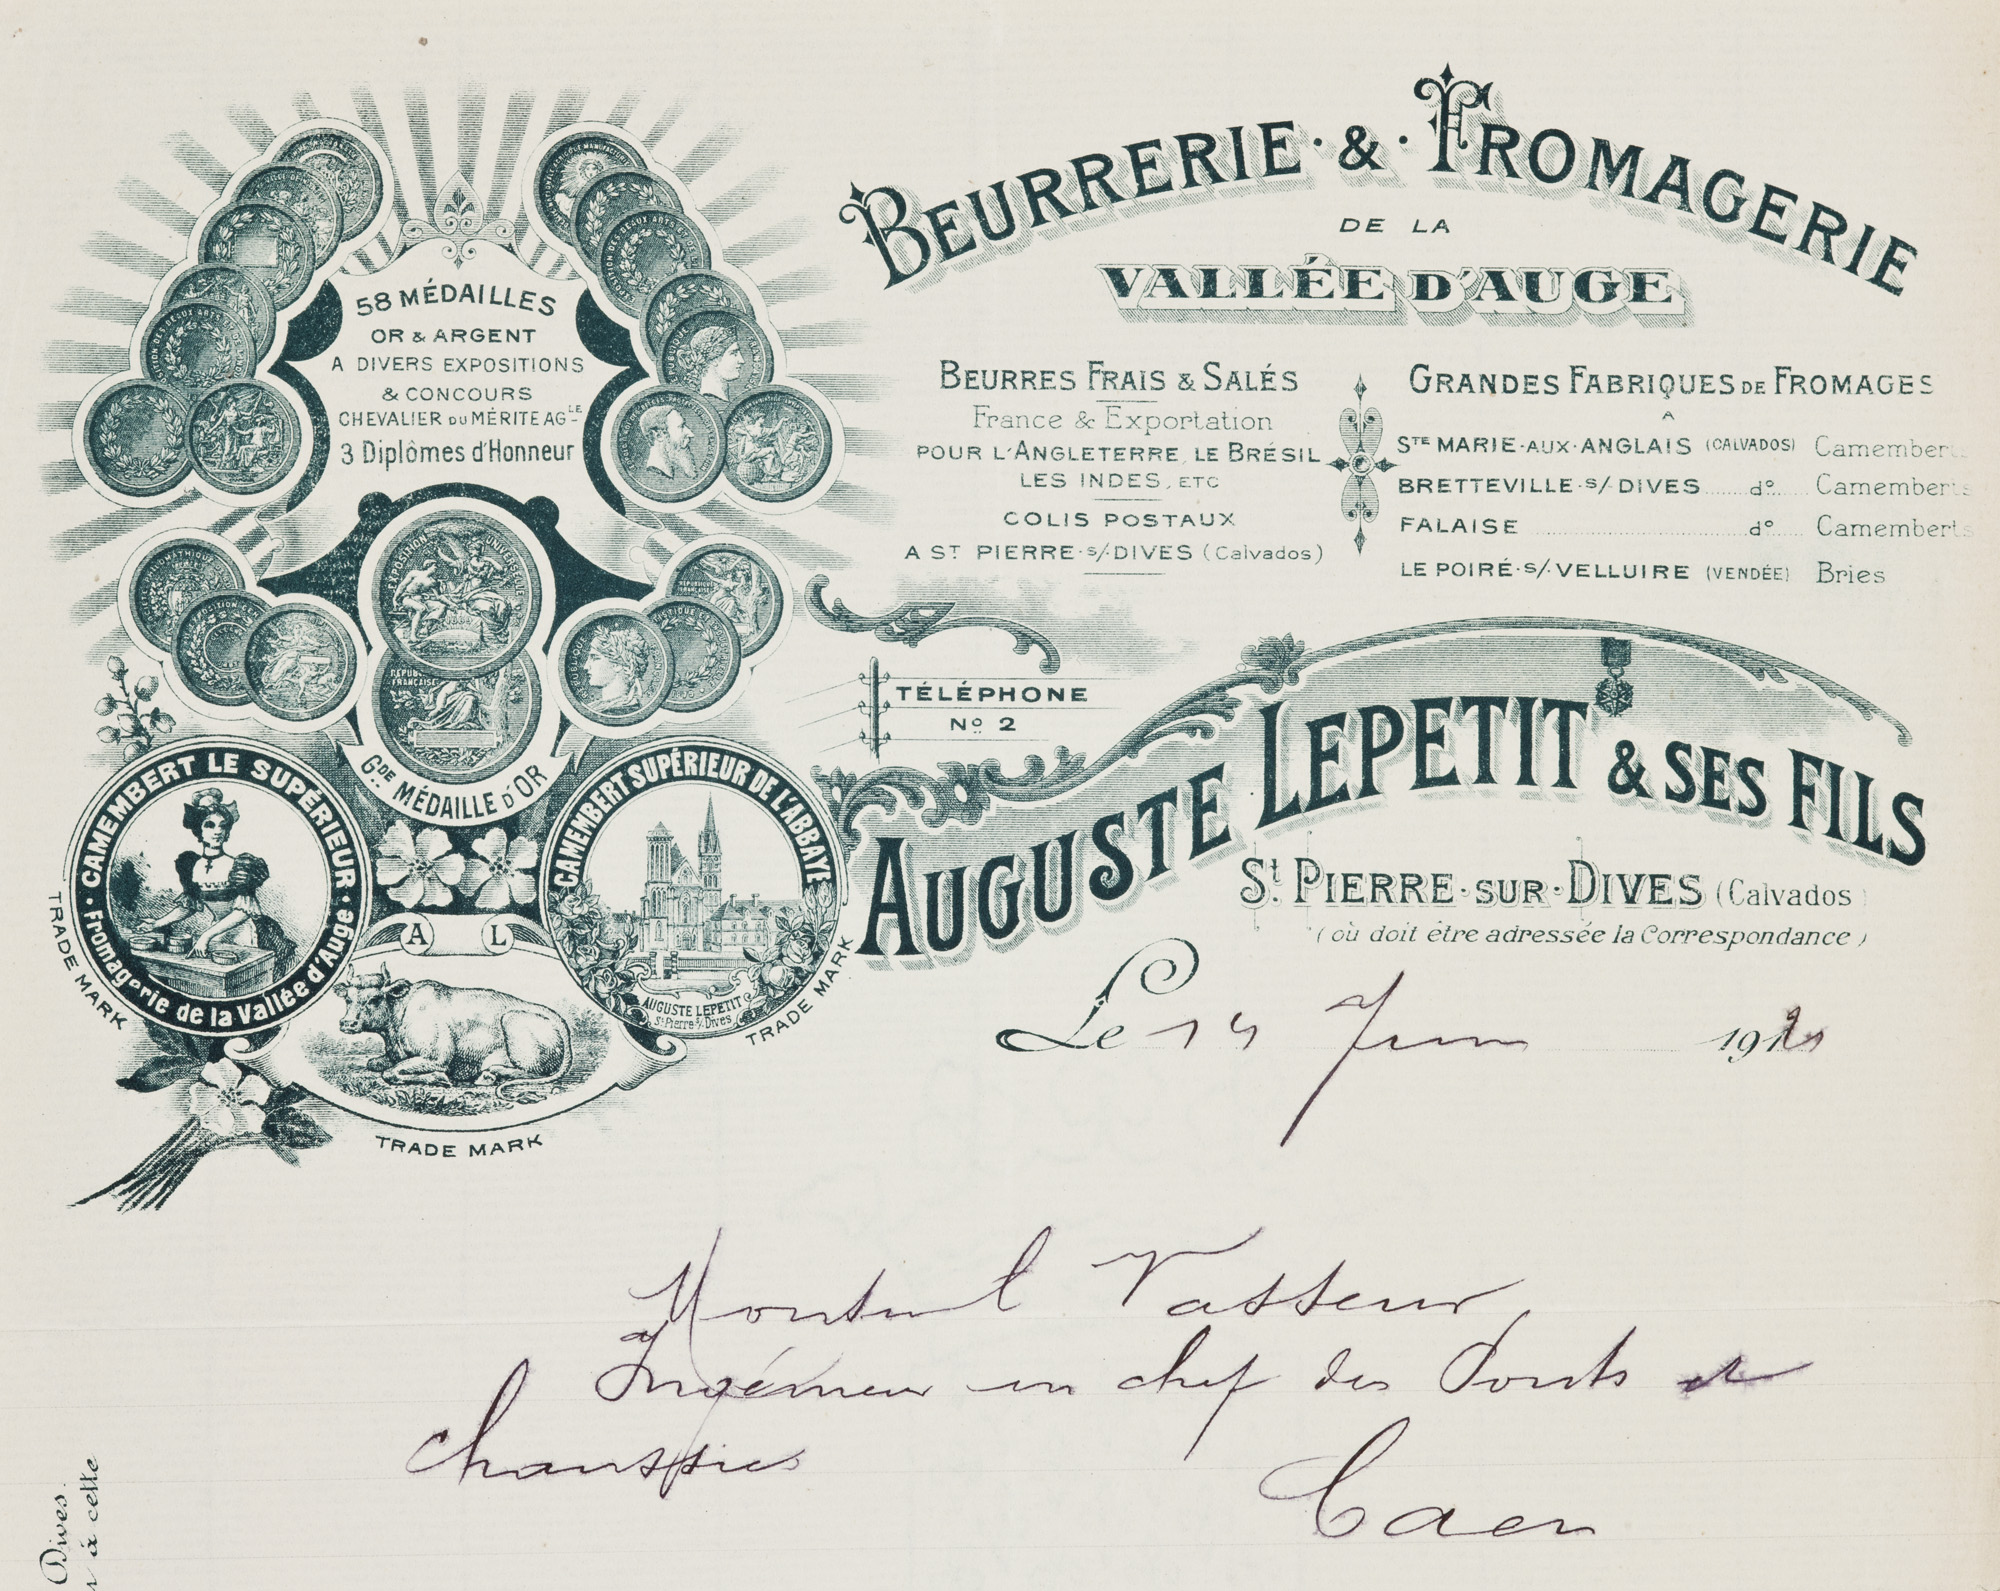 BEURRERIE · & · FROMAGERIE
DE LA
VALLÉE D'AUGE
58 MÉDAILLES
OR & ARGENT
A DIVERS EXPOSITIONS
& CONCOURS
CHEVALIER DU MÉRITE AGLE
3 Diplômes d'Honneur
EXPOSITION UNIVERSELLE
RÉPUBLIQUE FRANÇAISE
GDE MÉDAILLE D'OR
CAMEMBERT LE SUPÉRIEUR
Fromagerie de la Vallée d'Auge
TRADE MARK
CAMEMBERT SUPÉRIEUR DE L'ABBAYE
AUGUSTE LEPETIT
St Pierre s/ Dives
TRADE MARK
A L
TRADE MARK
BEURRES FRAIS & SALÉS
France & Exportation
POUR L'ANGLETERRE, LE BRÉSIL
LES INDES, ETC
COLIS POSTAUX
A ST PIERRE · s/ · DIVES (Calvados)
GRANDES FABRIQUES DE FROMAGES
A
STE MARIE · AUX · ANGLAIS (CALVADOS) Camemberts
BRETTEVILLE · s/ · DIVES ...... do ...... Camemberts
FALAISE ...... do ...... Camemberts
LE POIRÉ · s/ · VELLUIRE (VENDÉE) Bries
TÉLÉPHONE
No 2
AUGUSTE LEPETIT & SES FILS
St PIERRE · SUR · DIVES (Calvados)
(où doit être adressée la Correspondance)
Le 14 Juin 1921
Vasseur,
Ingénieur en chef des Ponts et
Chaussées
Caen
Dives.
à cette